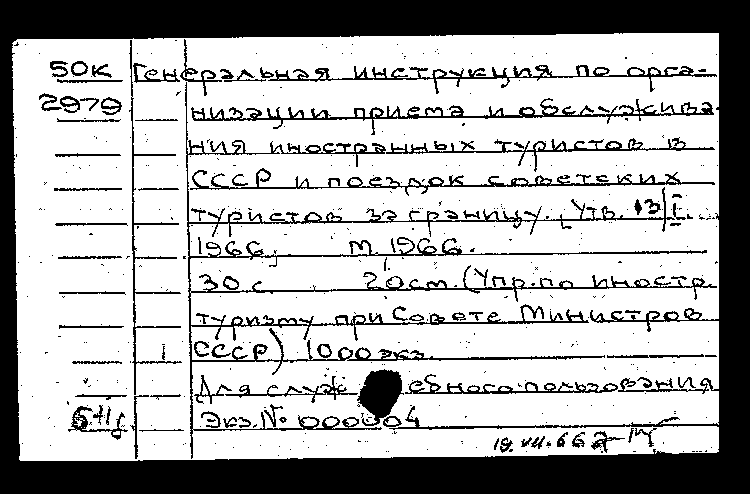 50К Генеральная инструкция по орга-
2979 низации приема и обслужива-
ния иностранных туристов в
СССР и поездок советских
туристов за границу. [Утв. 13/I.
1966. М, 1966.
30 с. 20 см. (Упр. по иностр.
туризму при Совете Министров
СССР) 1000 экз.
Для служебного пользования
Экз. № 000004
19.VII.66